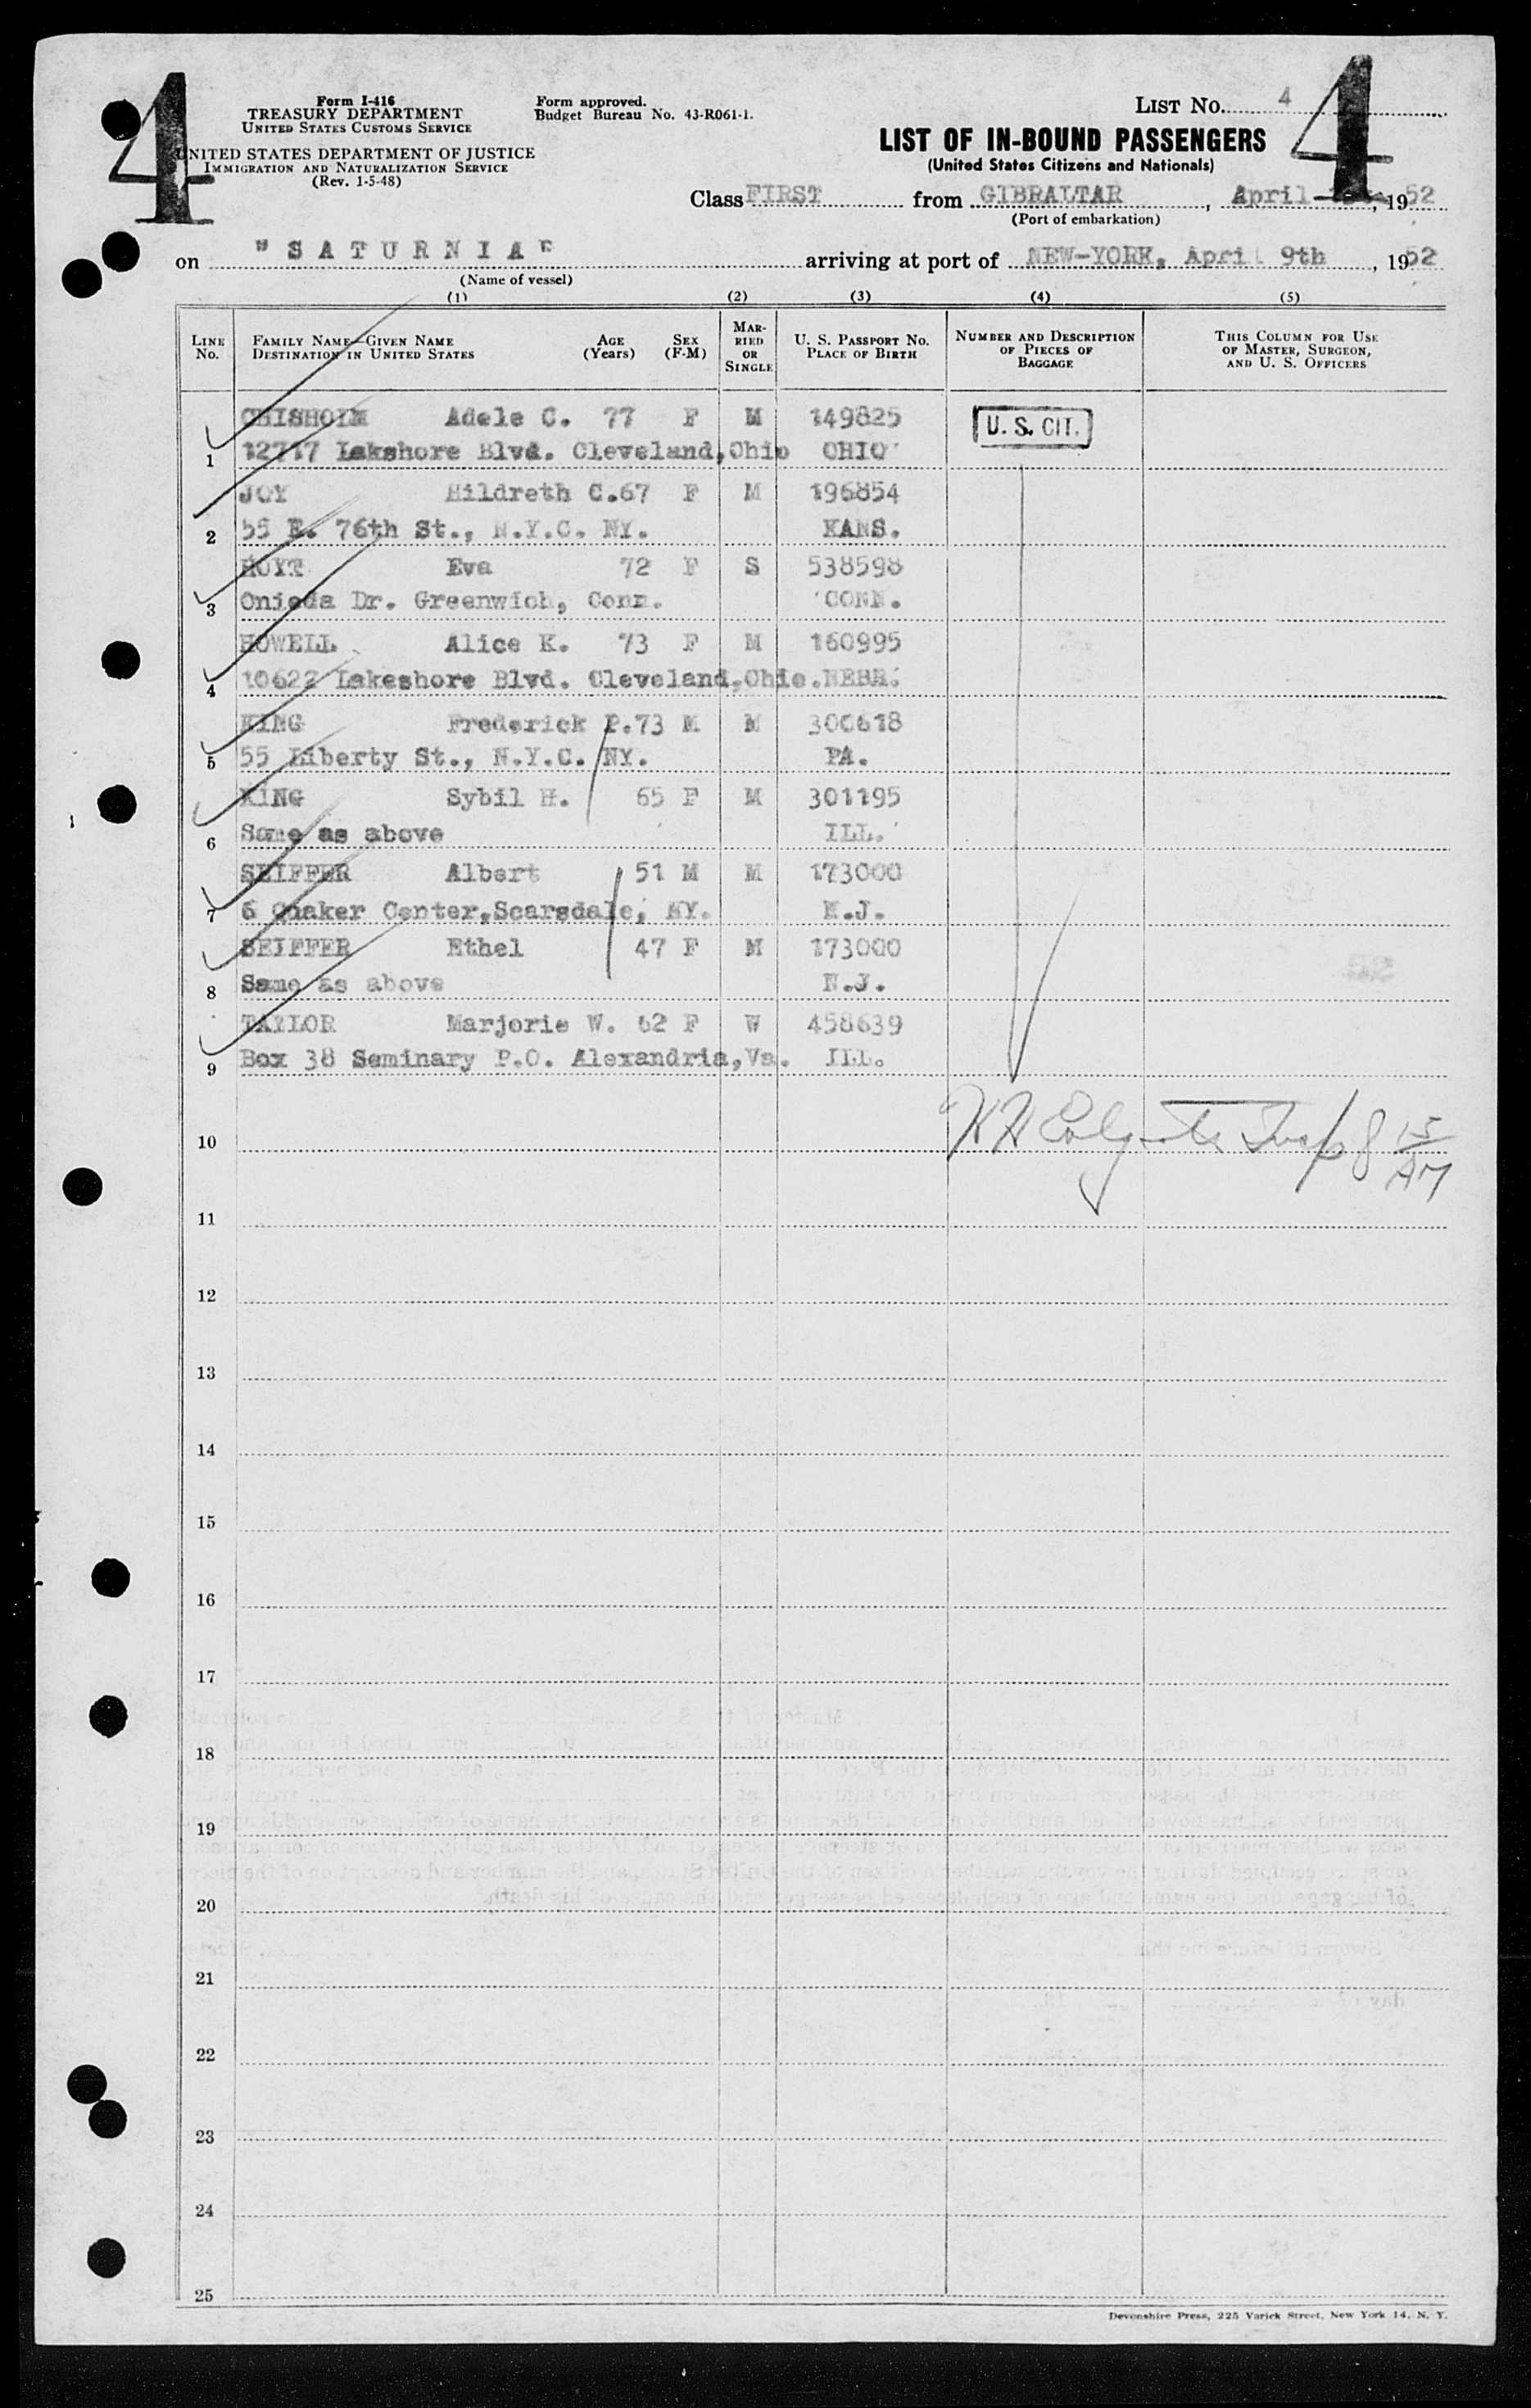 4
Form I-416
TREASURY DEPARTMENT
UNITED STATES CUSTOMS SERVICE
UNITED STATES DEPARTMENT OF JUSTICE
IMMIGRATION AND NATURALIZATION SERVICE
(Rev. 1-5-48)
Form approved.
Budget Bureau No. 43-R061-1.
LIST NO. 4
4
LIST OF IN-BOUND PASSENGERS
(United States Citizens and Nationals)
Class FIRST from GIBRALTAR, April , 1952
(Port of embarkation)
on "SATURNIA" arriving at port of NEW-YORK, April 9th, 1952
(Name of vessel)
(1) (2) (3) (4) (5)
LINE NO. FAMILY NAME—GIVEN NAME DESTINATION IN UNITED STATES AGE (Years) SEX (F-M) MARRIED OR SINGLE U. S. PASSPORT NO. PLACE OF BIRTH NUMBER AND DESCRIPTION OF PIECES OF BAGGAGE THIS COLUMN FOR USE OF MASTER, SURGEON, AND U. S. OFFICERS
CHISHOLM Adele C. 77 F M 149825 U. S. CIT.
1 12717 Lakshore Blvd. Cleveland,Ohio OHIO
JOY Hildreth C.67 F M 196854
2 55 E. 76th St., N.Y.C. NY. KANS.
HOYT Eva 72 F S 538598
3 Onieda Dr. Greenwich, Conn. CONN.
HOWELL Alice K. 73 F M 160995
4 10622 Lakeshore Blvd. Cleveland,Ohio. NEBR.
KING Frederick P.73 M M 300618
5 55 Liberty St., N.Y.C. NY. PA.
KING Sybil H. 65 F M 301195
6 Same as above ILL.
SEIFFER Albert 51 M M 173000
7 6 Quaker Center,Scarsdale, NY. N.J.
SEIFFER Ethel 47 F M 173000
8 Same as above N.J.
TAYLOR Marjorie W. 62 F W 458639
9 Box 38 Seminary P.O. Alexandria,Va. ILL.
10 Insp 8 15 AM
11
12
13
14
15
16
17
18
19
20
21
22
23
24
25
Devonshire Press, 225 Varick Street, New York 14, N. Y.